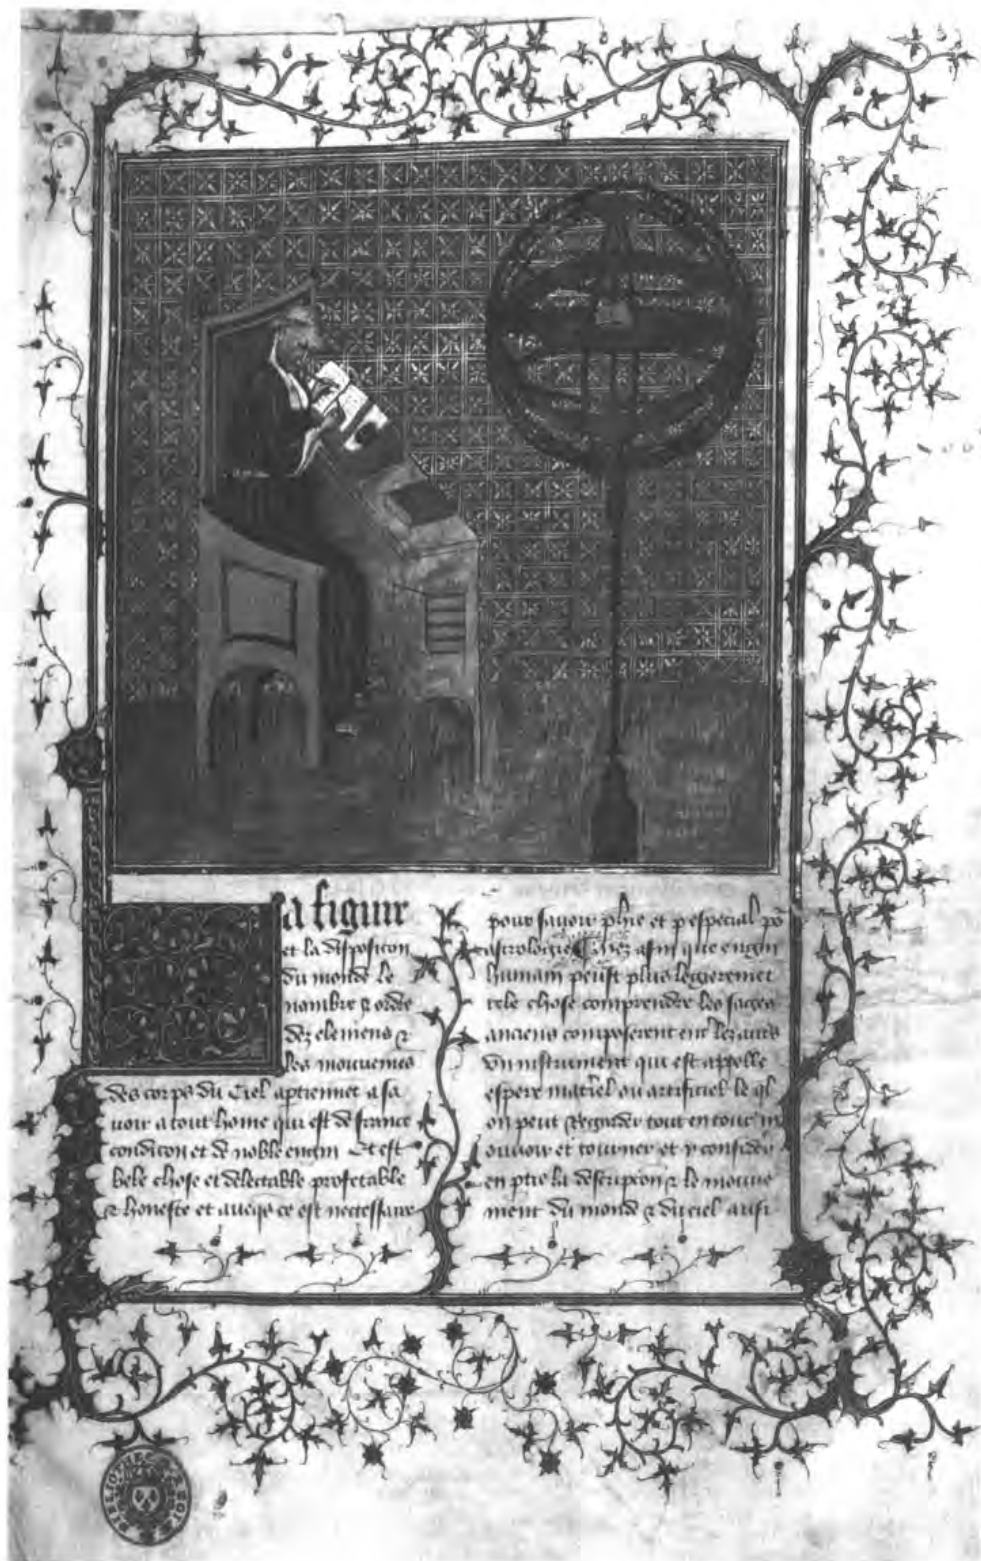 la figure
et la disposicon
du monde le
nombre & ordre
dez elemens &
les mouvemens
des corps du Ciel aptiennet a sa
uoir a tout home qui est de france
condicon et de noble engin Et est
bele chose et delectable profetable
& honeste et aueqs ce est necessaire
pour sauoir phie et p especial po
astrologie afin que engin
humain peust plus legieremet
tele chose comprendre les sages
anciens composerent ent lez auts
un instrument qui est appelle
espere matel ou artificiel le ql
on peut regarder tout entour
mouuoir et tourner et y considerer
en ptie la descripcon & le mouue
ment du monde & du ciel ausi